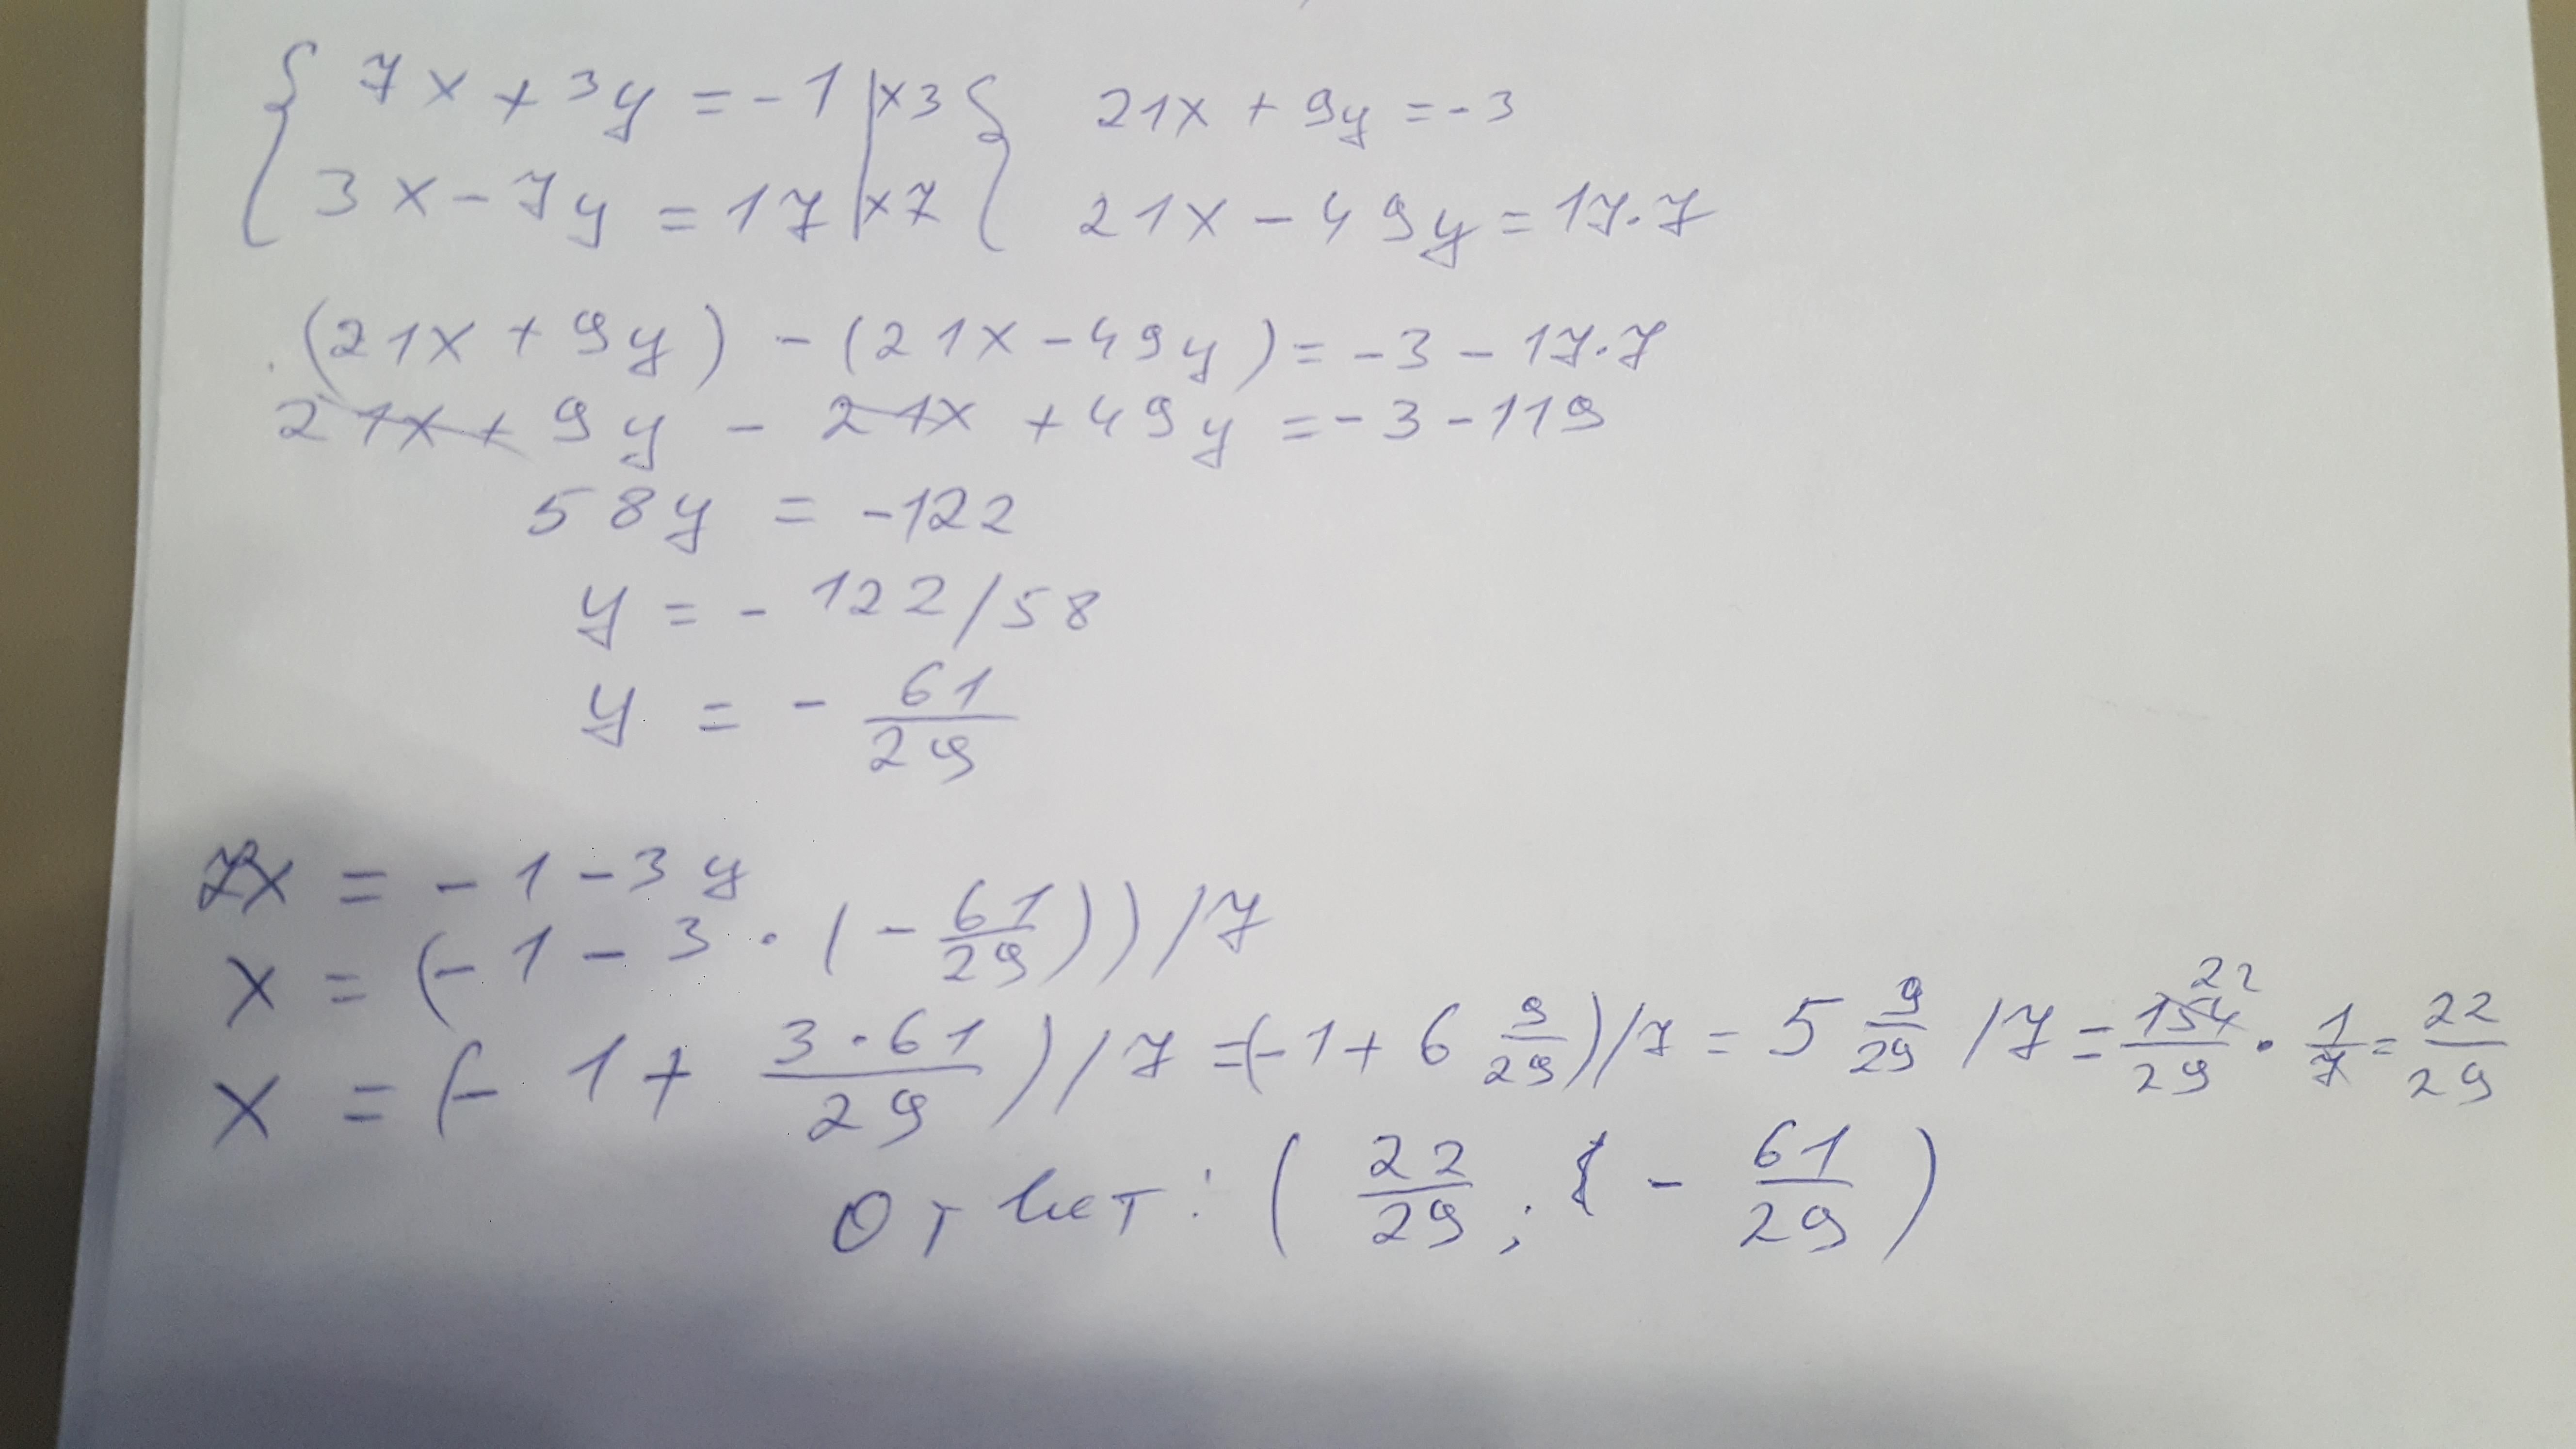 { 7x + 3y = -1 | x3 { 21x + 9y = -3
3x - 7y = 17 | x7 21x - 49y = 17·7
(21x + 9y) - (21x - 49y) = -3 - 17·7
21x + 9y - 21x + 49y = -3 - 119
58y = -122
y = - 122/58
y = - 61/29
7x = -1 - 3y
x = (-1 - 3 · (- 61/29)) / 7
x = (- 1 + 3·61/29) / 7 = (-1 + 6 9/29) / 7 = 5 9/29 / 7 = 154/29 · 1/7 = 22/29
22
Ответ: ( 22/29 ; - 61/29 )